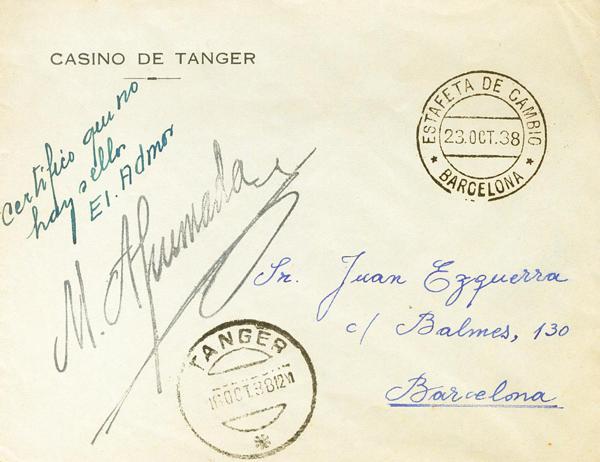 CASINO DE TANGER
certifico que no
hay sellos
El. Admor
M. Ahumada
ESTAFETA DE CAMBIO
23.OCT.38
* BARCELONA *
Sr. Juan Ezquerra
c/ Balmes, 130
Barcelona
TANGER
16OCT.38 12M
*